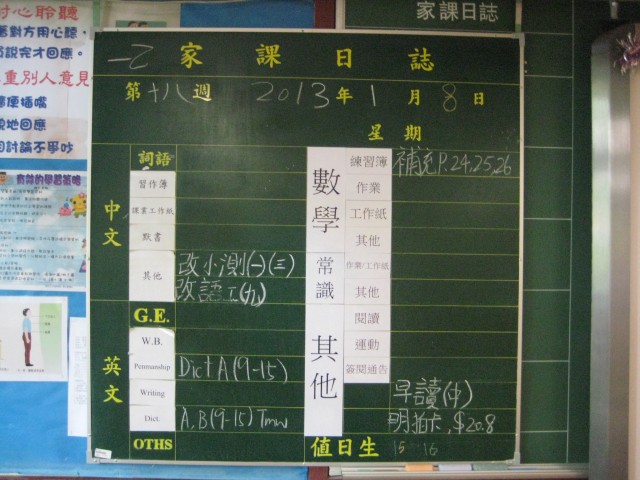 討心聆聽
家課日誌
一乙 家課日誌
第十八週 2013年1月8日
星期
中文
詞語
習作簿
課業工作紙
默書
其他 改小測(一)(三)
改語工(九)
英文
G.E.
W.B.
Penmanship Dict A (9-15)
Writing
Dict. A, B (9-15) Tmw
OTHS
數學
練習簿 補充P.24,25,26
作業
工作紙
其他
常識
作業/工作紙
其他
其他
閱讀
運動
簽閱通告
早讀(中)
明拍卡,$20.8
值日生 15 16
重別人意見
便插嘴
回應
討論不爭吵